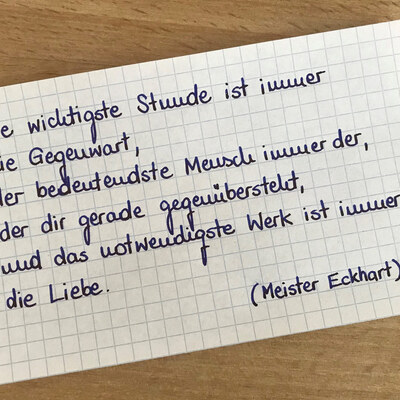 e wichtigste Stunde ist immer
ie Gegenwart,
der bedeutendste Mensch immer der,
der dir gerade gegenübersteht,
und das notwendigste Werk ist immer
die Liebe.
(Meister Eckhart)